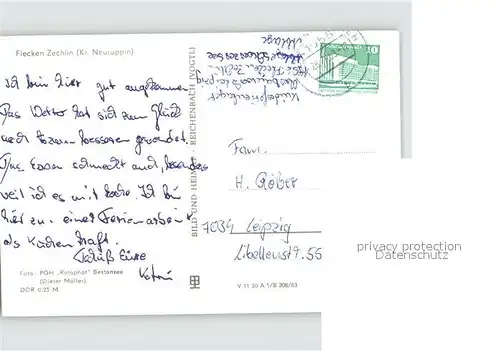 Flecken Zechlin (Kr. Neuruppin)
Ich bin hier gut angekommen
Das Wetter hat sich zum Glück
noch zum besseren gewendet.
Das Essen schmeckt auch, besonders
weil ich es mit koche. Ich bin
hier zu einer Ferienarbeit
als Küchenkraft.
Tschüß Eure
Foto: PGH „Rotophot" Bestensee
(Dieter Möller)
DDR 0,25 M
BILD UND HEIMAT · REICHENBACH (VOGTL)
10
Fam.
H. Gröber
7034 Leipzig
Libellenstr. 55
V 11 50 A 1/B 208/83
privacy protection
Datenschutz